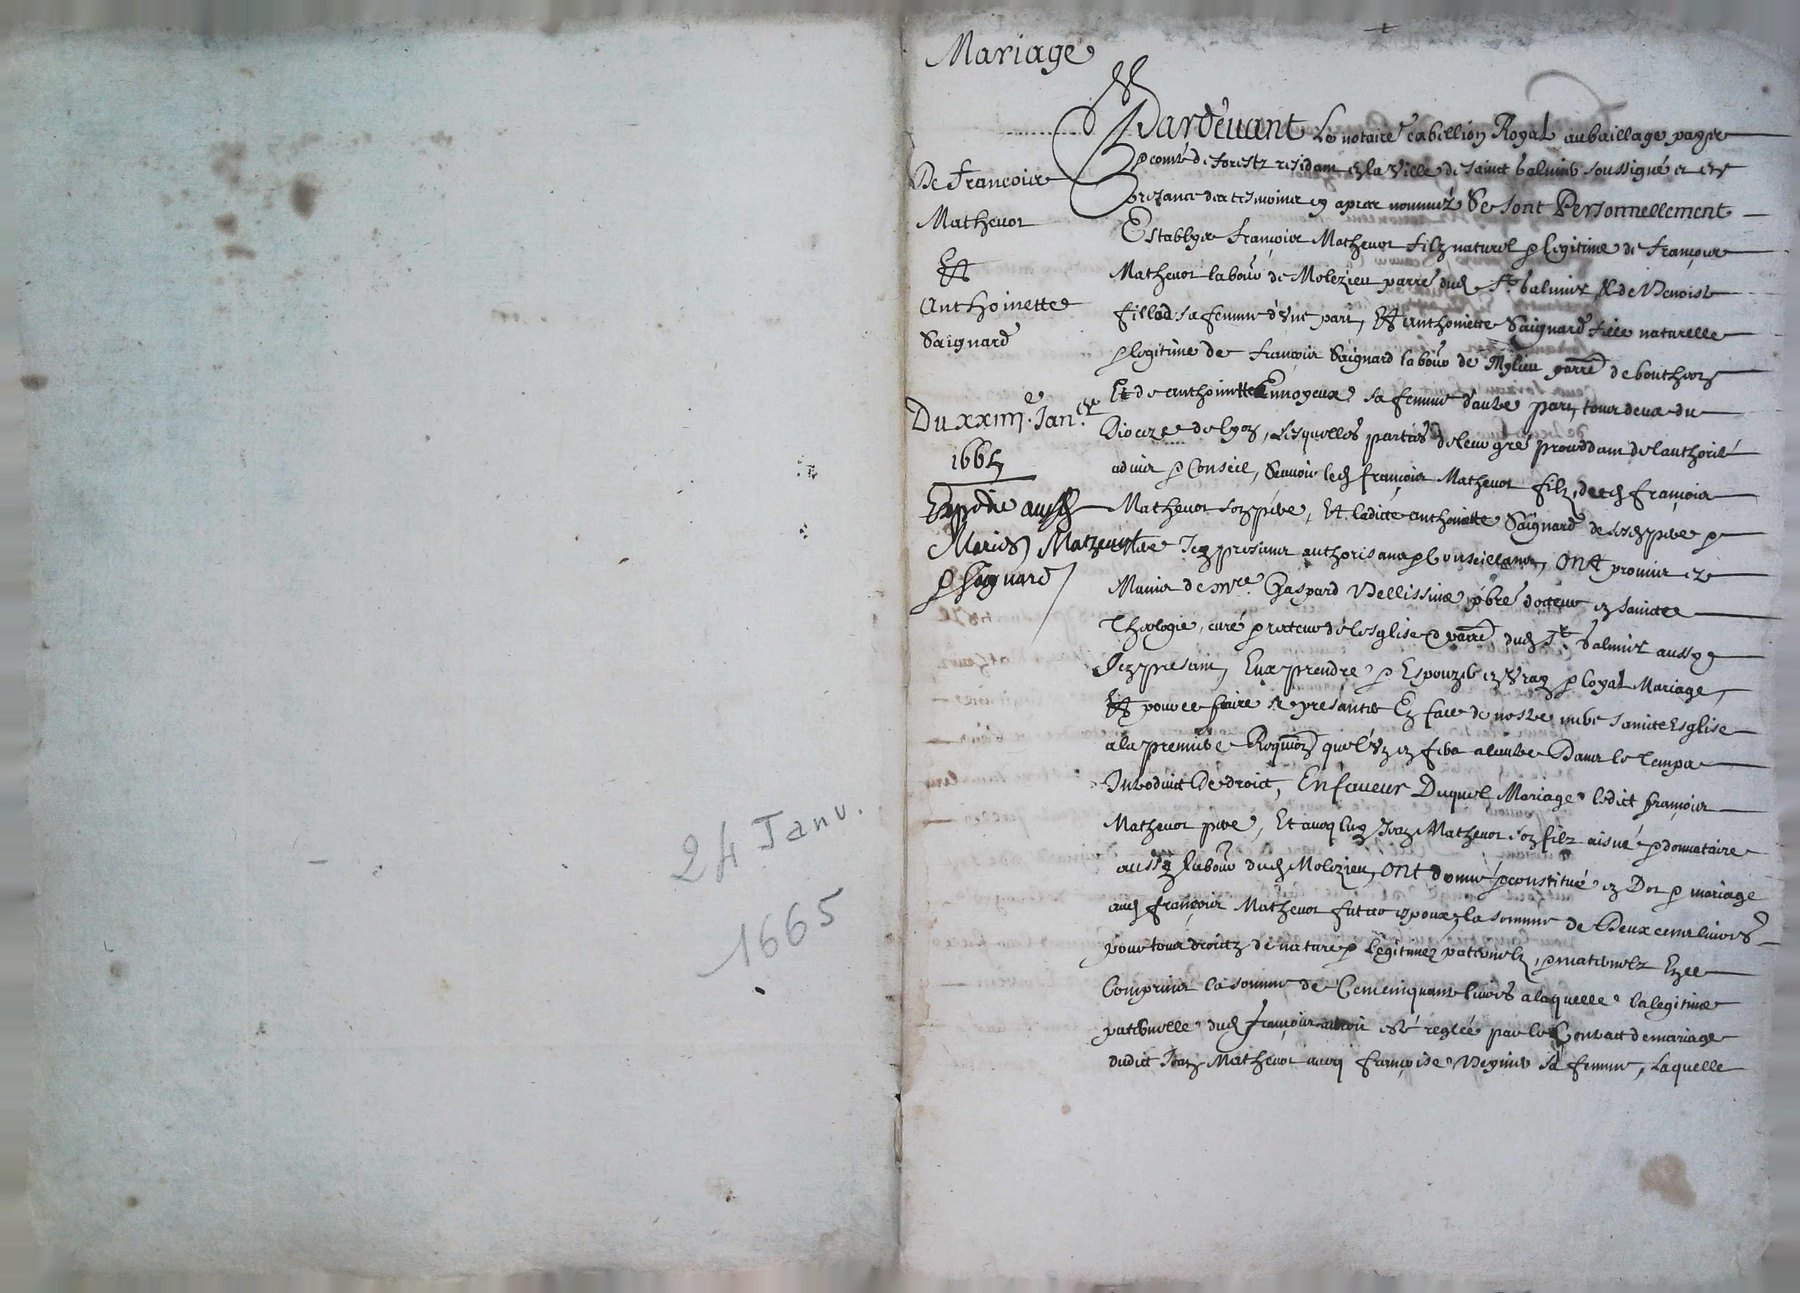 24 Janv.
1665
Mariage
De Francois
Mathevot
Et
Anthoinette
Saignard
Du xxiiii.e Jan.er
1665
Expedié ausd
Mariés Mathevot
& Saignard
Pardevant Le notaire tabellion Royal au bailliage pays
& comté de forestz residant en la Ville de sainct Galmier soussigné et en
presance des tesmoins cy apres nommez Se sont Personnellement
Establys François Mathevot filz naturel & legitime de François
Mathevot labour de Molezieu parre dud St Galmier & de Benoiste
fillod sa femme d'une part, Et Anthoinette Saignard fille naturelle
& legitime de François Saignard labour de parre de bouthéon
Et de Anthoinette sa femme d'autre part, tous deux du
Dioceze de Lyon, Lesquelles parties de leur gré proceddant de l'authorité
advis & Conseil, Scavoir led François Mathevot filz, dud François
Mathevot son pere, Et ladicte Anthoinette Saignard de sesd pere &
mere Icy presens authorisans & Conseillans, ONt promis es
Mains de Mre. Gaspard Vellissieux pbre docteur en saincte
Theologie, curé & recteur de l'esglise & parre dud St Galmier aussy
Icy present, Eux prendre & Espouzer en vray & loyal Mariage,
Et pour ce faire se presanter En face de nostre mere saincte Esglise
a la premiere Requion que l'un en fera a l'autre Dans le Temps
Introduict De droict, En faveur Duquel Mariage ledict François
Mathevot pere, Et avecq luy Jean Mathevot son filz aisné & donnataire
aussy labour dud Molezieu, ONt donné & constitué en Dot & mariage
aud François Mathevot futur espoux la somme de Deux cens livres
pour tous droictz de nature & legitimes paternelz, & maternelz En ce
Comprins la somme de Cent cinquante livres a laquelle la legitime
paternelle dud François avoit esté reglée par le Contract de mariage
dudict Jean Mathevot avecq Françoise sa femme, Laquelle